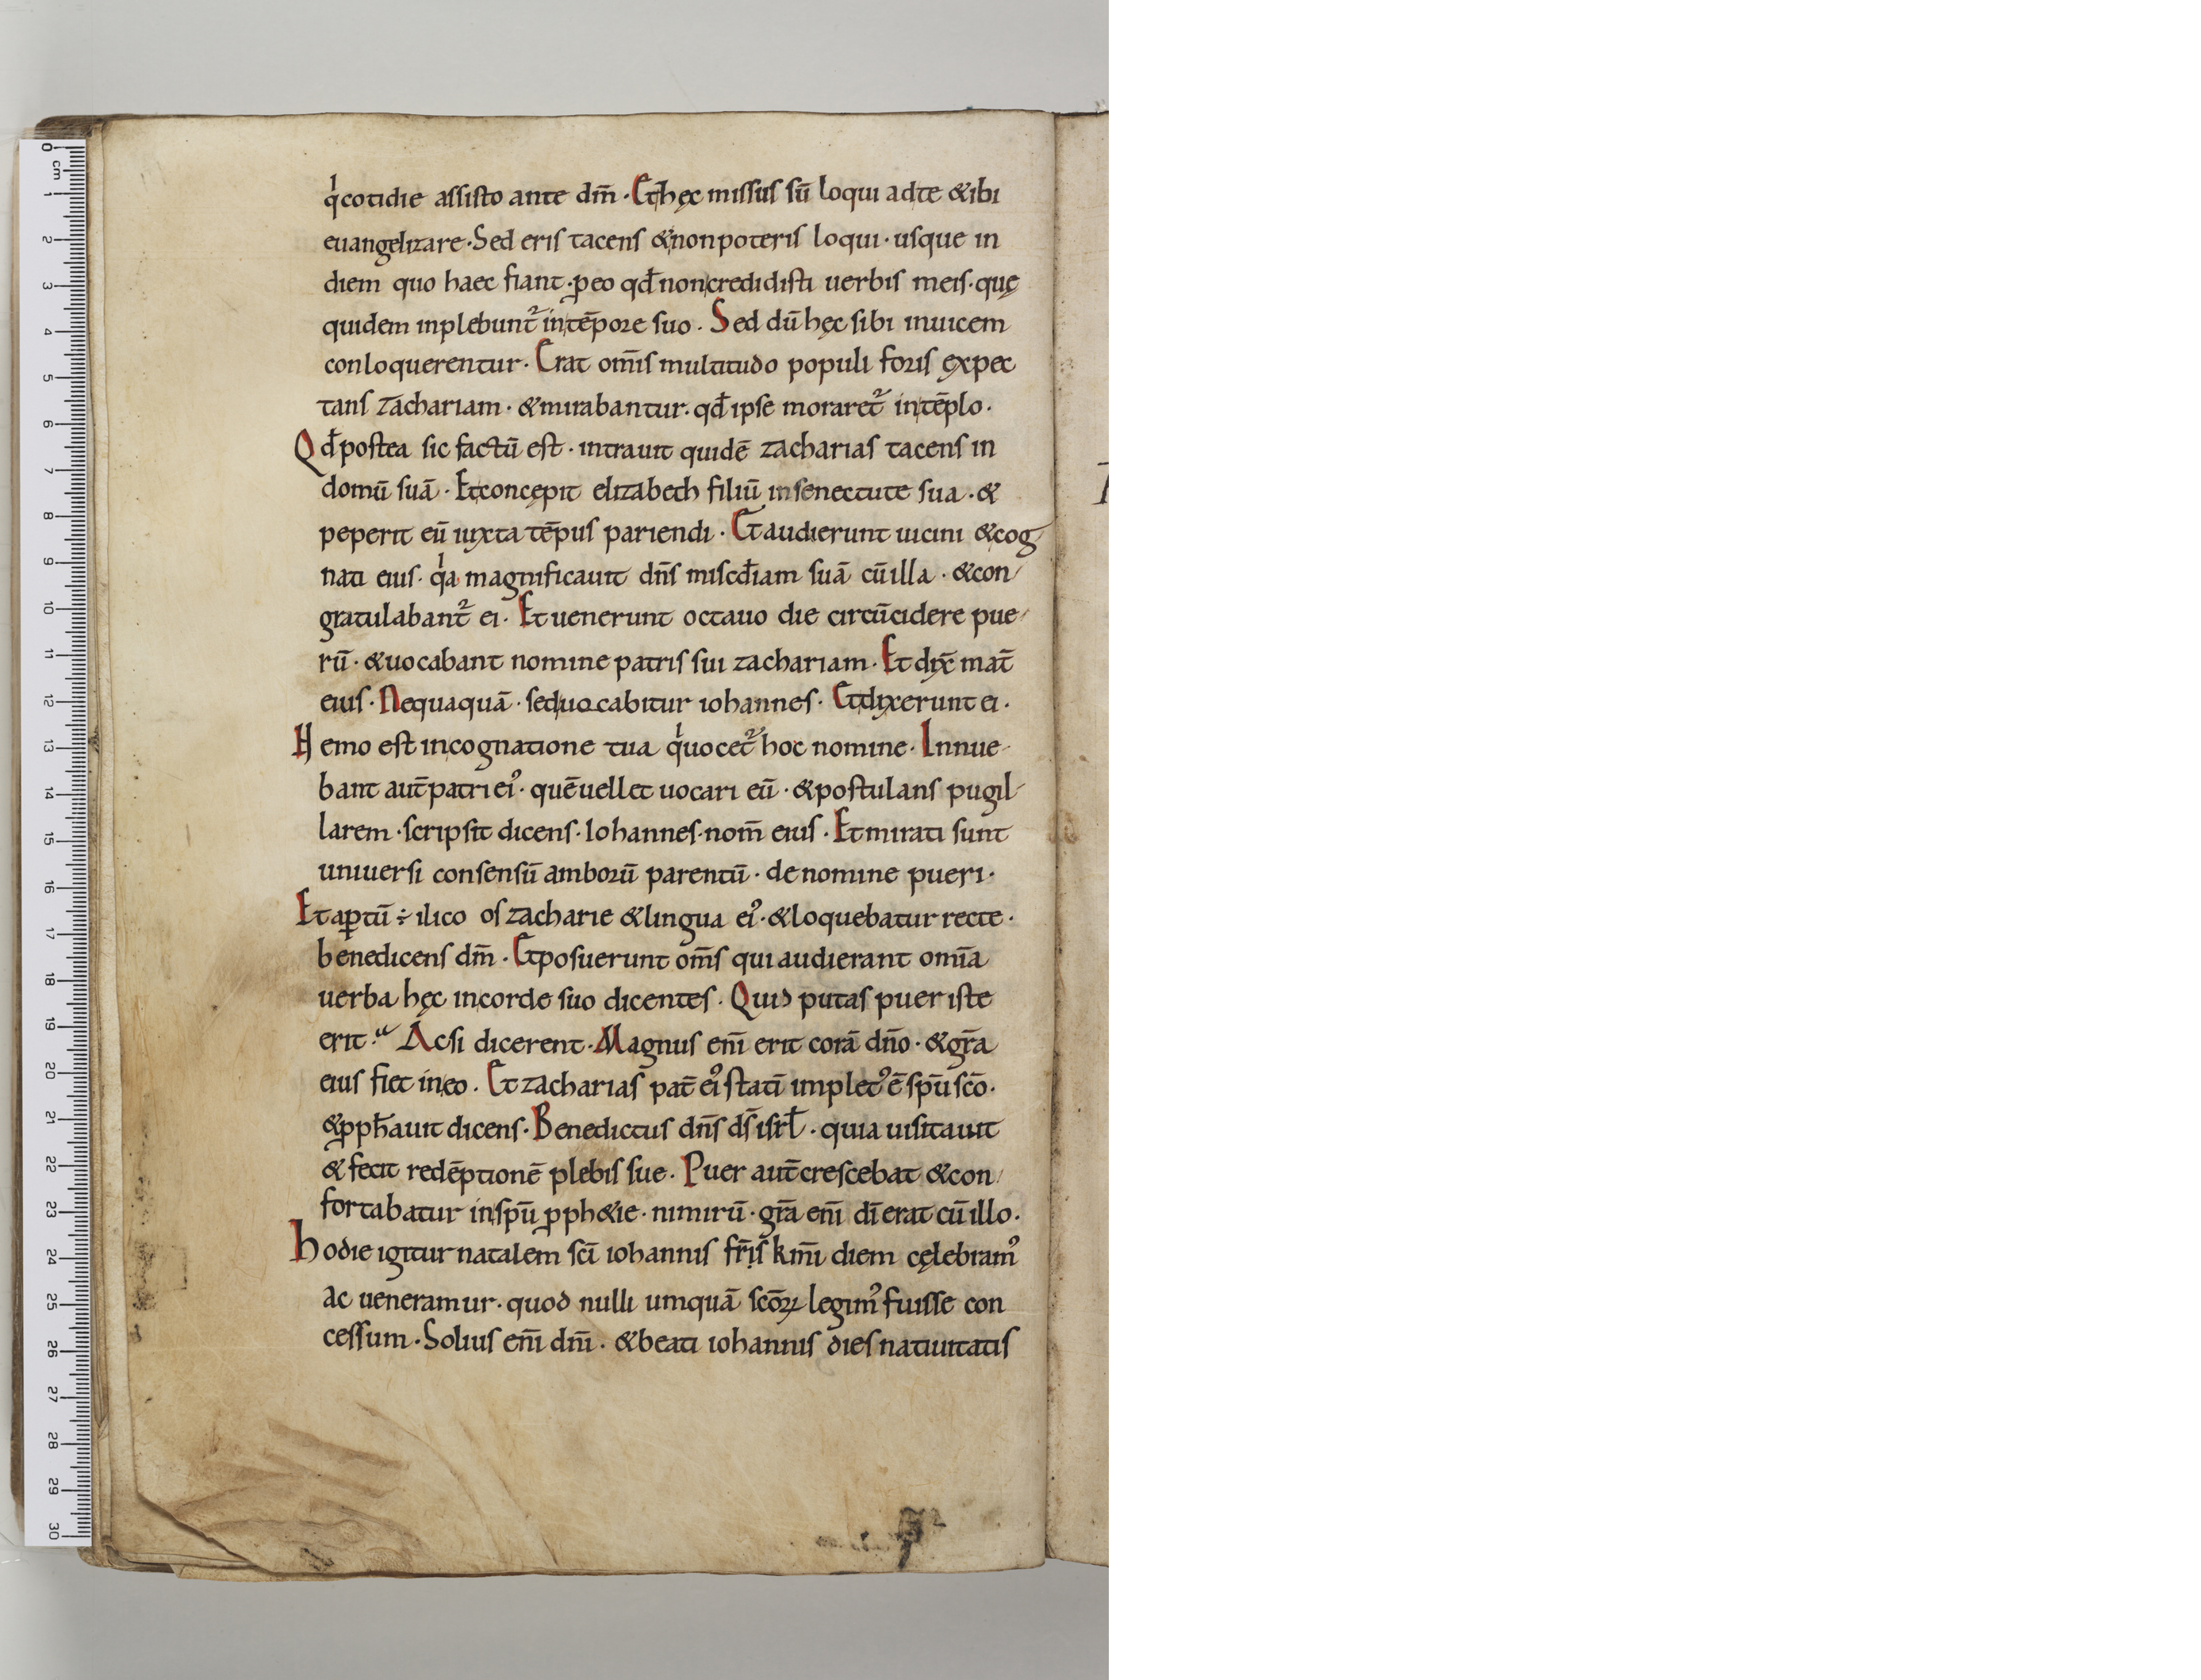 qͥcotidie assisto ante dm̄ · Et hęc missus sū loqui adte & ibi
euangelizare · Sed eris tacens & non poteris loqui · usque in
diem quo haec fiant · ꝑeo qđ non credidisti uerbis meis · quę
quidem inplebunt᷑ in tēpore suo · Sed dū hęc sibi inuicem
conloquerentur · Erat om̄is multitudo populi foris expec
tans zachariam · & mirabantur · qđ ipse moraret᷑ in tēplo ·
Qđ postea sic factū est · intrauit quidē zacharias tacens in
domū suā · Et concępit elizabeth filiū in senectute sua · &
peperit eū iuxta tēpus pariendi · Et audierunt uicini & cog
nati eius · qͥa magnificauit dn̄s misc̄diam suā cū illa · & con
gratulabant᷑ ei · Et uenerunt octauo die circūcidere pue
rū · & uocabant nomine patris sui zachariam · Et dix̄ mat̄
eius · Nequaquā · sed uocabitur iohannes · Et dixerunt ei ·
Nemo est in cognatione tua qͥ uocet᷑ hoc nomine · Innue
bant aut̄ patri eiꝰ · quē uellet uocari eū · & postulans pugil
larem · scripsit dicens · Iohannes · nom̄ eius · Et mirati sunt
uniuersi consensū amborū parentū · de nomine pueri ·
Et aꝑtū ÷ ilico os zacharie & lingua eiꝰ · & loquebatur recte ·
benedicens dm̄ · Et posuerunt om̄s qui audierant omīa
uerba hęc in corde suo dicentes · Quid putas puer iste
erit · Ac si dicerent · Magnus eni̅ erit corā dn̄o · & gr̄a
eius fiet in eo · Et zacharias pat̄ eiꝰ statī impletꝰ ē sp̄u sc̄o ·
& ꝓph̄auit dicens · Benedictus dn̄s ds̄ isrł · quia uisitauit
& fecit redēptionē plebis sue · Puer aut̄ crescebat & con
fortabatur in sp̄u ꝓph&ie · nimirū · gr̄a eni̅ dī erat cū illo ·
Hodie igitur natalem sc̄i iohannis fr̄is km̄i diem cęlebramꝰ
ac ueneramur · quod nulli umquā sc̄oꝝ legimꝰ fuisse con
cessum · Solius eni̅ dn̄i · & beati iohannis dies natiuitatis